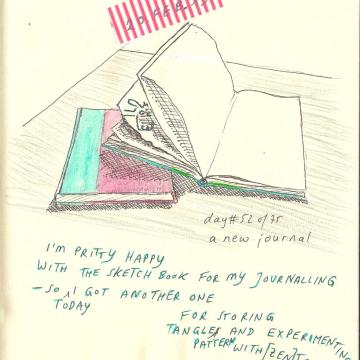 20 FEB.
day#52 of 75
a new journal
I'M PRITTY HAPPY
WITH THE SKETCH BOOK FOR MY JOURNALLING
– SO I GOT ANOTHER ONE
TODAY
FOR STORING
TANGLES AND EXPERIMENTING
PATTERN WITH [ZEN]T